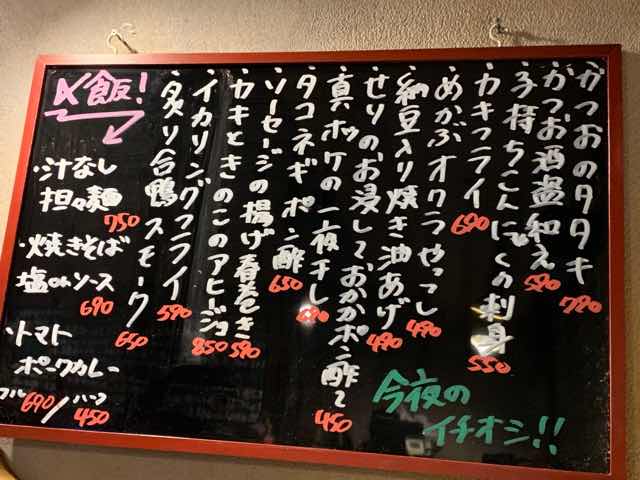 今夜の
イチオシ!!
・かつおのタタキ 780
・かつお酒盗和え 580
・子持ちこんにゃくの刺身 550
・カキフライ 690
・めかぶオクラやっこ 490
・納豆入り焼き油あげ 490
・せりのお浸し〜おかかポン酢て 450
・真ホッケの一夜干し
・タコネギポン酢 650
・ソーセージの揚げ春巻き 590
・カキときのこのアヒージョ 850
・イカリングフライ 590
・炙り合鴨スモーク 650
〆飯!
・汁なし
担々麺
750
・焼きそば
塩orソース
690
・トマト
ポークカレー
フル690/ハーフ450